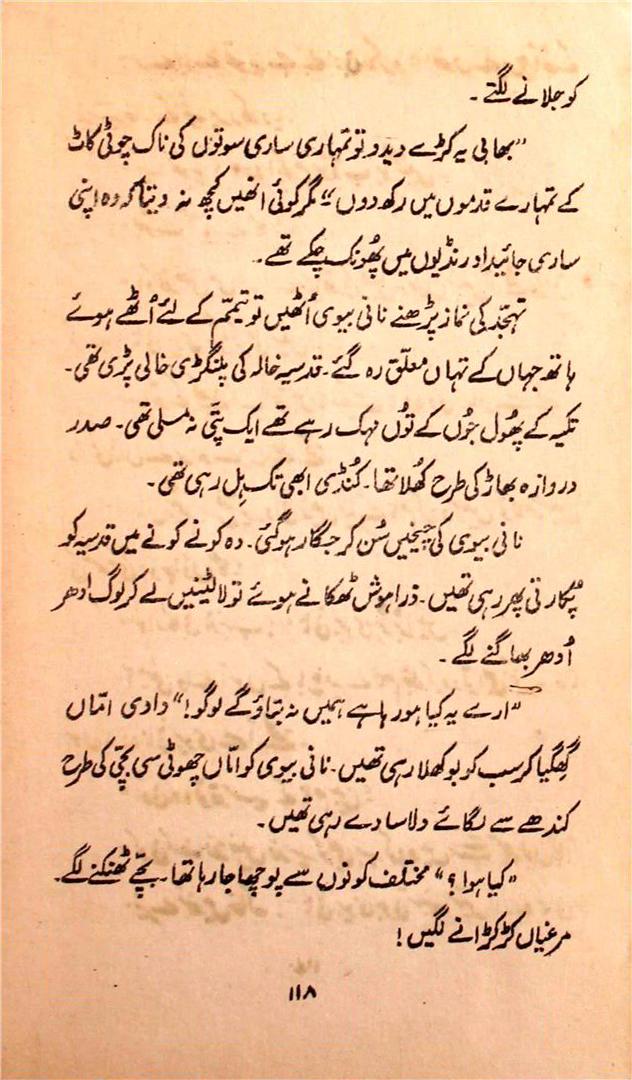 کو جلانے لگتے۔
”بھابی یہ کڑے دیدو تو تمہاری ساری سوتوں کی ناک چوٹی کاٹ
کے تمہارے قدموں میں رکھ دوں“ مگر کوئی انھیں کچھ نہ دیتا کہ وہ اپنی
ساری جائیداد رنڈیوں میں پھونک چکے تھے۔
تہجّد کی نماز پڑھنے نانی بیوی اُٹھیں تو تیمّم کے لئے اُٹھے ہوئے
ہاتھ جہاں کے تہاں معلّق رہ گئے۔ قدسیہ خالہ کی پلنگڑی خالی پڑی تھی۔
تکیہ کے پھُول جُوں کے تُوں مہک رہے تھے ایک پتّی نہ مسلی تھی۔ صدر
دروازہ بھاڑ کی طرح کھُلا تھا۔ کُنڈی ابھی تک ہِل رہی تھی۔
نانی بیوی کی چیخیں سُن کر جگار ہوگئی۔ وہ کونے کونے میں قدسیہ کو
پُکارتی پھر رہی تھیں۔ ذرا ہوش ٹھکانے ہوئے تو لالٹینیں لے کر لوگ ادھر
اُدھر بھاگنے لگے۔
”ارے یہ کیا ہو رہا ہے ہمیں نہ بتاؤ گے لوگو!“ دادی امّاں
گھگیا کر سب کو بوکھلا رہی تھیں۔ نانی بیوی کو امّاں چھوٹی سی بچّی کی طرح
کندھے سے لگائے دلاسا دے رہی تھیں۔
”کیا ہوا؟“ مختلف کونوں سے پوچھا جا رہا تھا۔ بچّے ٹھنکنے لگے۔
مرغیاں کڑکڑانے لگیں!
۱۱۸